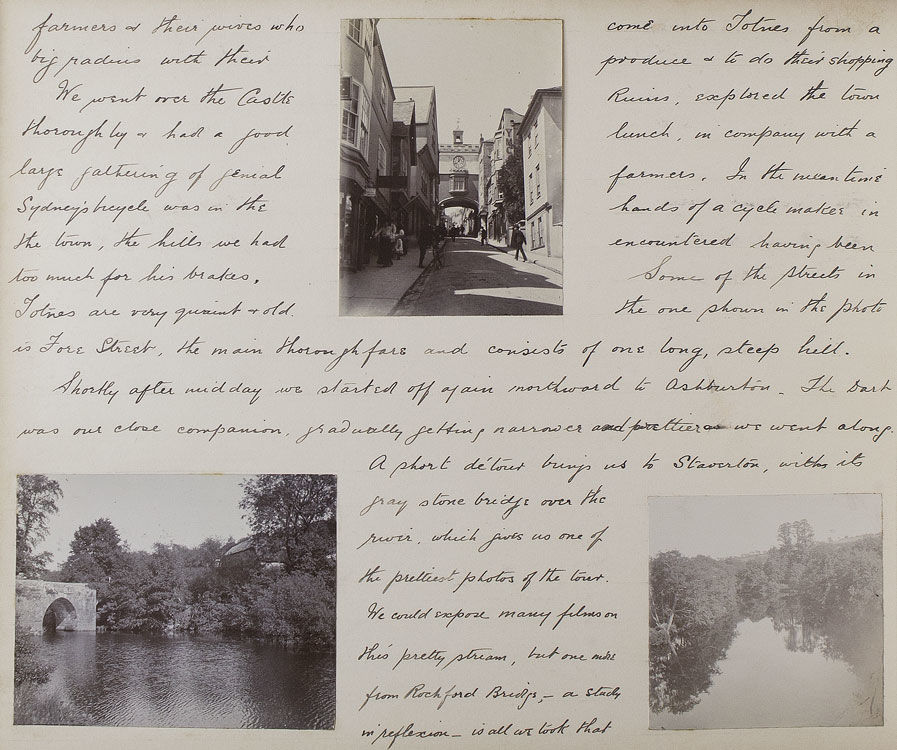 farmers & their wives who come into Totnes from a
big radius with their produce & to do their shopping
We went over the Castle Ruins, explored the town
thoroughly & had a good lunch, in company with a
large gathering of genial farmers. In the meantime
Sydney's bicycle was in the hands of a cycle maker in
the town, the hills we had encountered having been
too much for his brakes. Some of the streets in
Totnes are very quaint & old. the one shown in the photo
is Fore Street, the main thoroughfare and consists of one long, steep hill.
Shortly after midday we started off again northward to Ashburton. The Dart
was our close companion, gradually getting narrower and prettier as we went along.
A short détour brings us to Staverton, with its
gray stone bridge over the
river, which gives us one of
the prettiest photos of the tour.
We could expose many films on
this pretty stream, but one more
from Rockford Bridge – a study
in reflexion – is all we took that